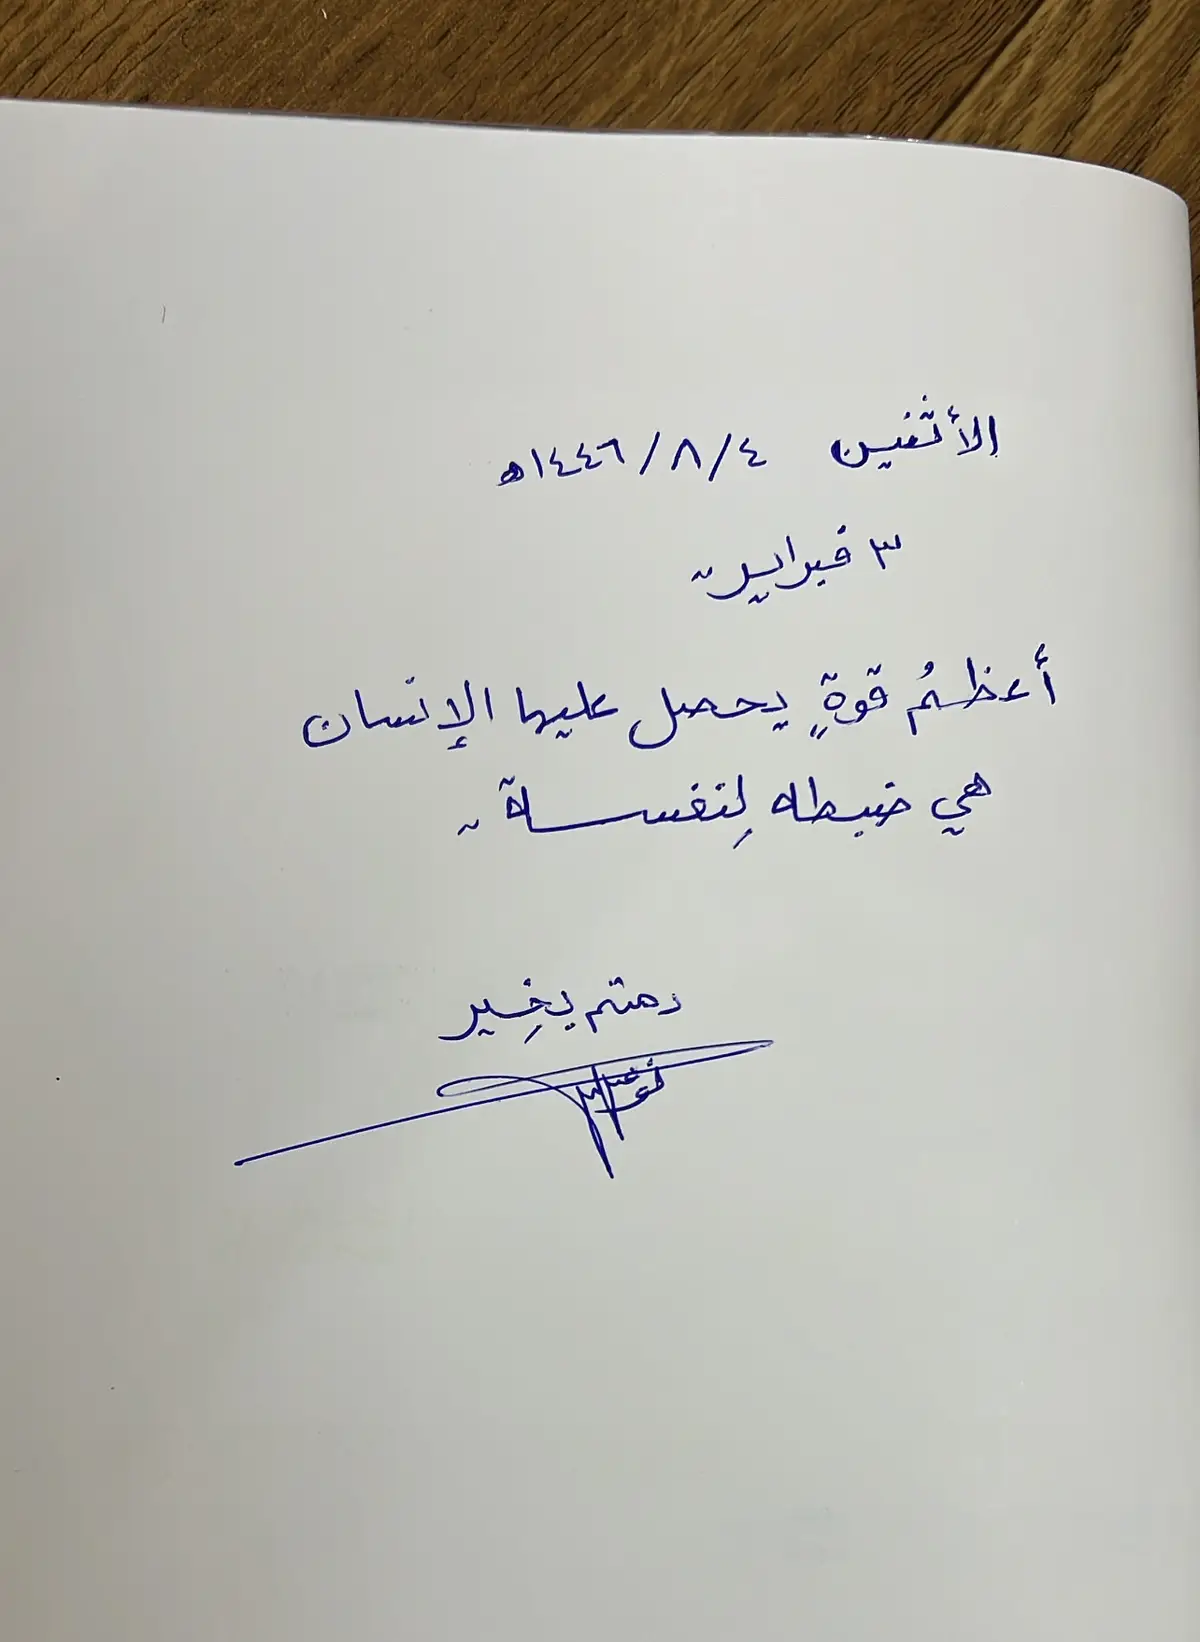 الأثنين ٤/٨/١٤٤٦هـ
٣ فبراير
أعظمُ قوةٍ يحصل عليها الإنسان
هي ضبطه لِنفسة
دمتم بخِير